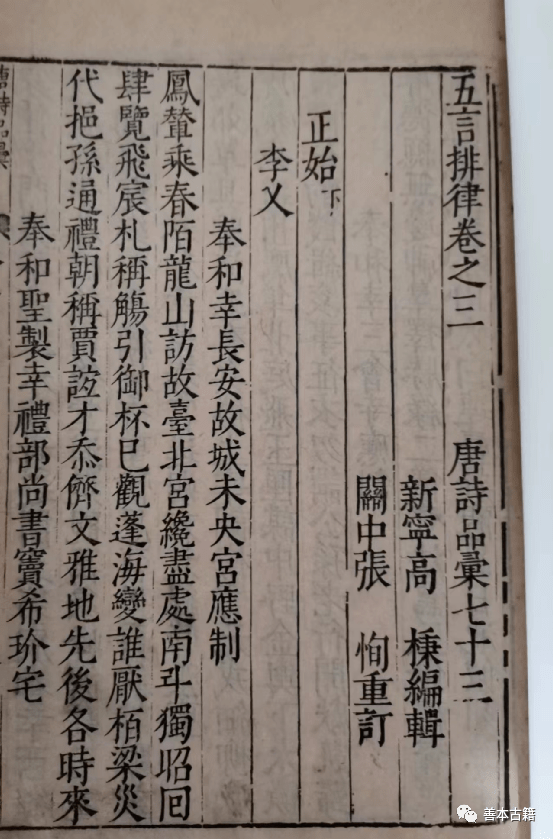 五言排律卷之三 唐詩品彙七十三
新寧高 棅編輯
關中張 恂重訂
正始下
李乂
奉和幸長安故城未央宮應制
鳳輦乘春陌龍山訪故臺北宮纔盡處南斗獨昭回
肆覽飛宸札稱觴引御杯已觀蓬海變誰厭栢梁災
代挹孫通禮朝稱賈誼才忝儕文雅地先後各時來
奉和聖製幸禮部尚書竇希玠宅
唐詩品彙
善本古籍